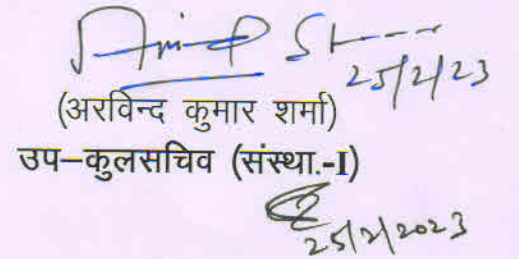 25/2/23
(अरविन्द कुमार शर्मा)
उप–कुलसचिव (संस्था.-I)
25/2/2023